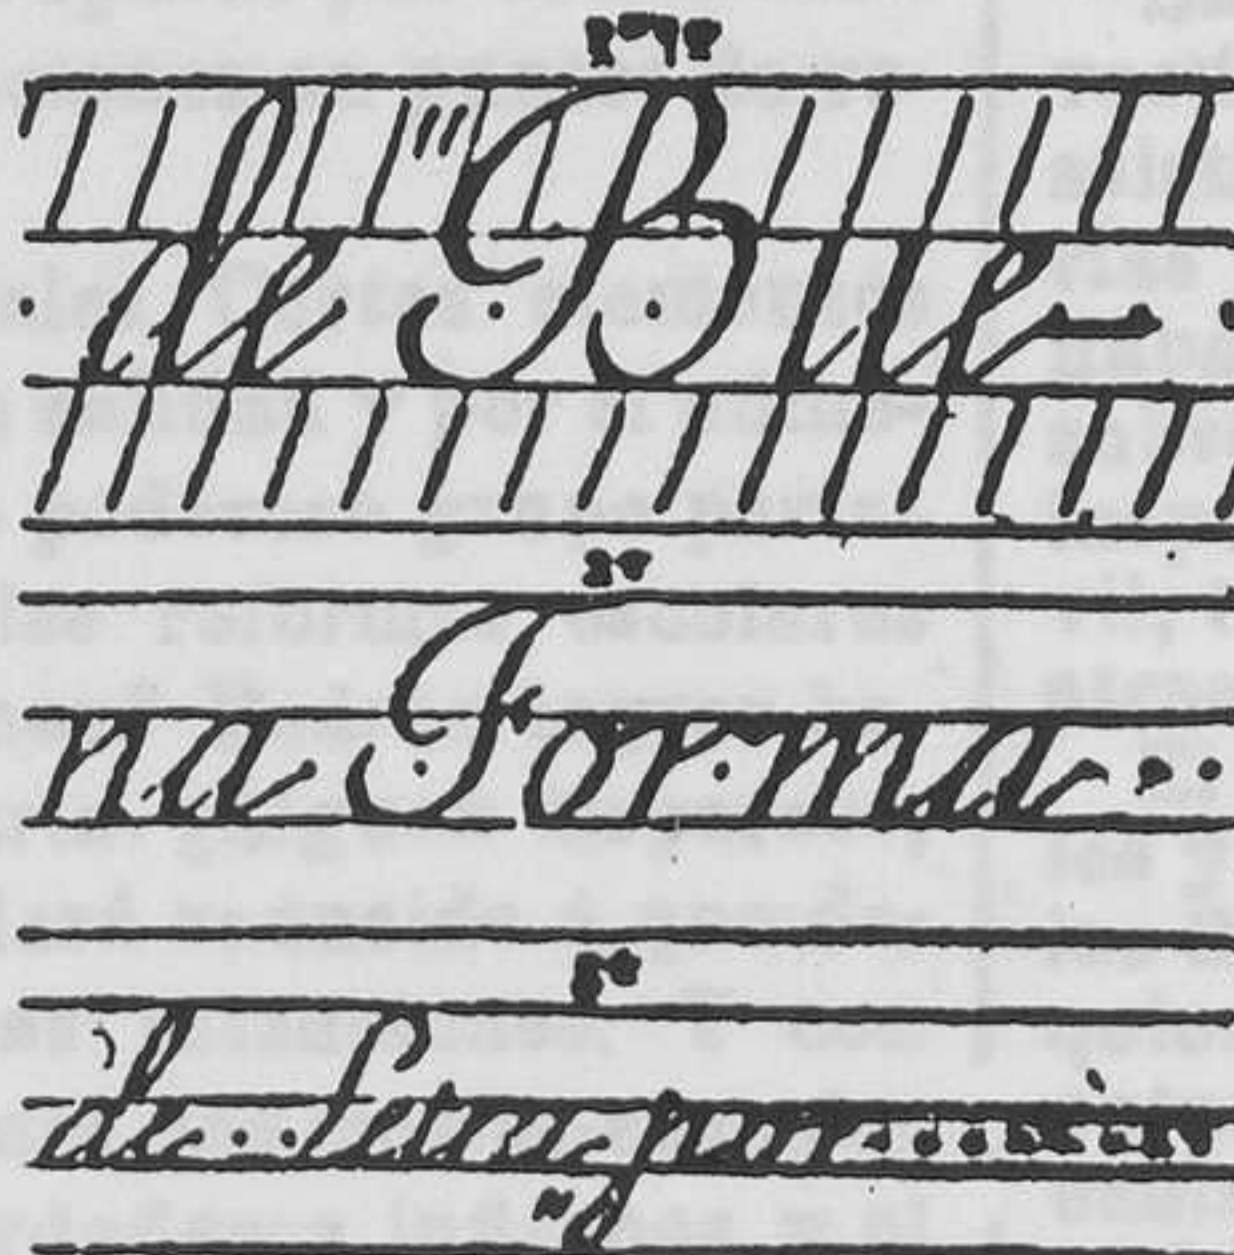 de Bue
na Forma
de Letra por